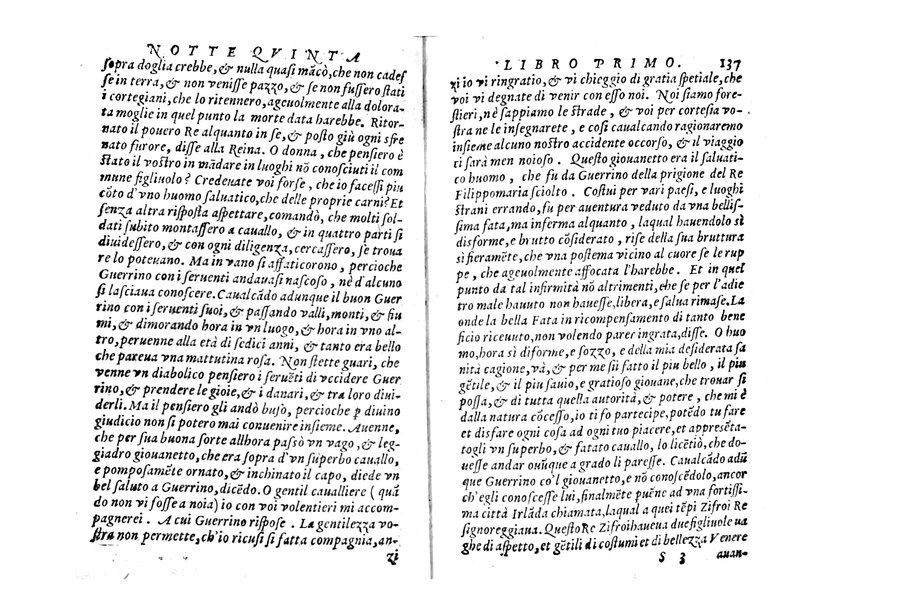 NOTTE QVINTA
sopra doglia crebbe, & nulla quasi mācò, che non cades
se in terra, & non venisse pazzo, & se non fussero stati
i cortegiani, che lo ritennero, ageuolmente alla dolora-
ta moglie in quel punto la morte data harebbe. Ritor-
nato il pouero Re alquanto in se, & posto giù ogni sfre
nato furore, disse alla Reina. O donna, che pensiero è
stato il vostro in mādare in luoghi nō conosciuti il com
mune figliuolo? Credeuate voi forse, che io facessi piu
cōto d'vno huomo saluatico, che delle proprie carni? Et
senza altra risposta aspettare, comandò, che molti sol-
dati subito montassero a cauallo, & in quattro parti si
diuidessero, & con ogni diligenza, cercassero, se troua
re lo poteuano. Ma in vano si affaticorono, percioche
Guerrino con i seruenti andauasi nascoso, nè d'alcuno
si lasciaua conoscere. Caualcādo adunque il buon Guer
rino con i seruenti suoi, & passando valli, monti, & fiu
mi, & dimorando hora in vn luogo, & hora in vno al-
tro, peruenne alla età di sedici anni, & tanto era bello
che pareua vna mattutina rosa. Non stette guari, che
venne vn diabolico pensiero i seruēti di vccidere Guer
rino, & prendere le gioie, & i danari, & tra loro diui-
derli. Ma il pensiero gli andò buso, percioche p diuino
giudicio non si potero mai conuenire insieme. Auenne,
che per sua buona sorte allhora passò vn vago, & leg-
giadro giouanetto, che era sopra d'vn superbo cauallo,
e pomposamēte ornato, & inchinato il capo, diede vn
bel saluto a Guerrino, dicēdo. O gentil caualliere (quā
do non vi fosse a noia) io con voi volentieri mi accom-
pagnerei. A cui Guerrino rispose. La gentilezza vo-
stra non permette, ch'io ricusi si fatta compagnia, an-
zi
LIBRO PRIMO. 137
zi io vi ringratio, & vi chieggio di gratia spetiale, che
voi vi degnate di venir con esso noi. Noi siamo fore-
stieri, nè sappiamo le strade, & voi per cortesia vo-
stra ne le insegnarete, e così caualcando ragionaremo
insieme alcuno nostro accidente occorso, & il viaggio
ci sarà men noioso. Questo giouanetto era il saluati-
co huomo, che fu da Guerrino della prigione del Re
Filippomaria sciolto. Costui per vari paesi, e luoghi
strani errando, fu per auentura veduto da vna bellis-
sima fata, ma inferma alquanto, laqual hauendolo sì
disforme, e brutto cōsiderato, rise della sua bruttura
sì fieramēte, che vna postema vicino al cuore se le rup
pe, che ageuolmente affocata l'harebbe. Et in quel
punto da tal infirmità nō altrimenti, che se per l'adie
tro male hauuto non hauesse, libera, e salua rimase. La
onde la bella Fata in ricompensamento di tanto bene
ficio riceuuto, non volendo parer ingrata, disse. O huo
mo, hora sì diforme, e sozzo, e della mia desiderata sa
nità cagione, và, & per me sii fatto il piu bello, il piu
gētile, & il piu sauio, e gratioso giouane, che trouar si
possa, & di tutta quella autorità, & potere, che mi è
dalla natura cōcesso, io ti fo partecipe, potēdo tu fare
et disfare ogni cosa ad ogni tuo piacere, et appresēta-
togli vn superbo, & fatato cauallo, lo licētiò, che do-
uesse andar ouūque a grado li paresse. Caualcādo adū
que Guerrino co'l giouanetto, e nō conoscēdolo, ancor
ch'egli conoscesse lui, finalmēte puēne ad vna fortissi-
ma città Irlāda chiamata, laqual a quei tēpi Zifroi Re
signoreggiaua. Questo Re Zifroi haueua due figliuole ua
ghe di aspetto, et gētili di costumi et di bellezza Venere
S 3 auan-